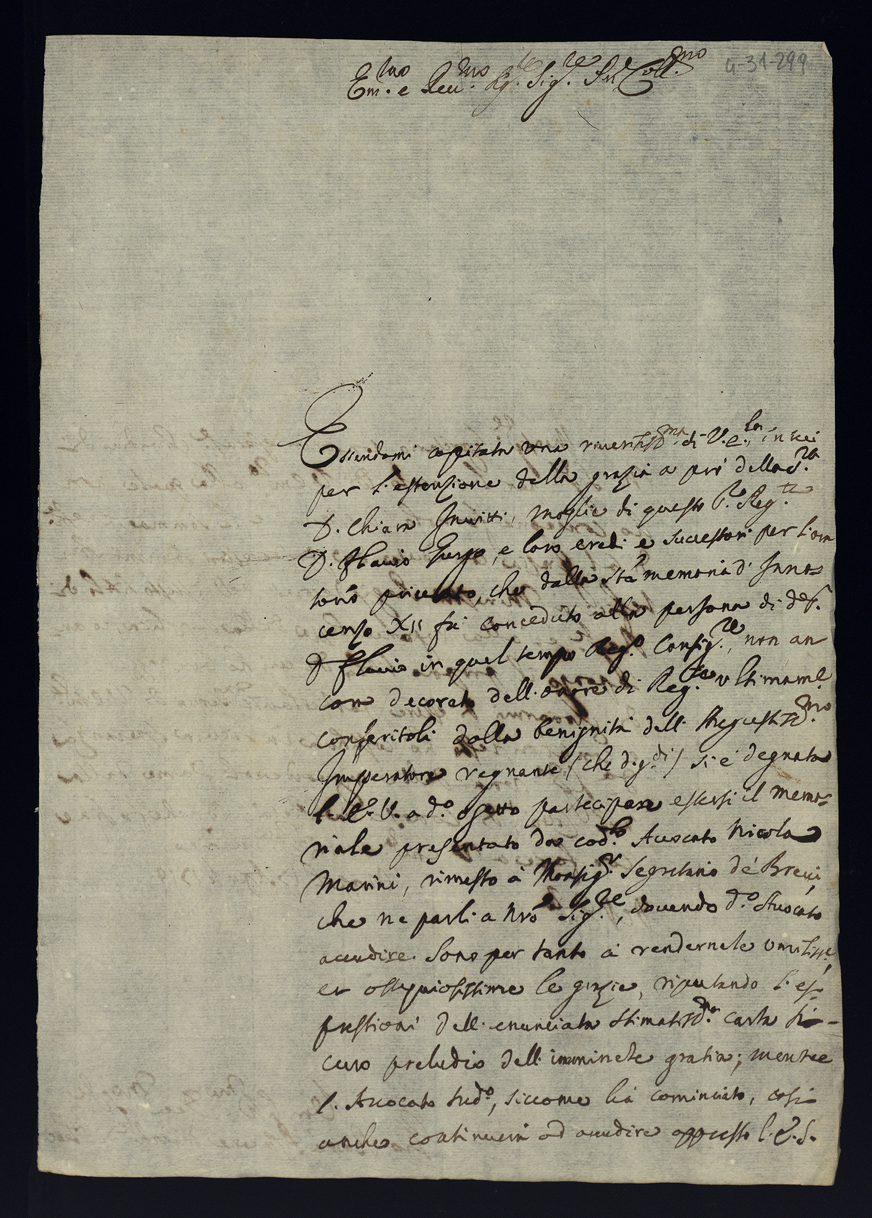 4-31-299
Em.mo e Rev.mo Sig.re Sig.re Coll.mo
Essendomi capitata una riveritiss.ma di V. E., in sei
per l'estenzione della grazia a prò della S.ra
D. Chiara Invitti, moglie di questo Reg.te
D. Flavio Gurgo, e loro eredi e successori per l'ora
torio privato, che dalla S.ta memoria d'Inno=
cenzo XII fù conceduto alla persona di d.o S.
D. Flavio in quel tempo Reg.o Consig.re, non an
cora decorato dell'onore di Reg.te ultimam.e
conferitoli dalla benignità dell'Augustiss.mo
Imperatore regnante (che d. g.di) si è degnata
l'E. V. a d.o ogetto partecipare essersi il memo=
riale presentato da cod.o Avocato Nicola
Marini, rimesso à Monsig.r Segretario de' Brevi,
che ne parli a Nro Sig.re, dovendo d.o Avocato
accudire. Sono per tanto à rendernele umiliss.e,
et ossequiosissime le grazie, riputando l'es=
pressioni dell'enunciata stimatiss.ma carta si=
curo preludio dell'imminete gratia; mentre
l'Avocato sud.o, siccome hà cominciato, così
anche continuerà ad accudire appresso l'E. S.